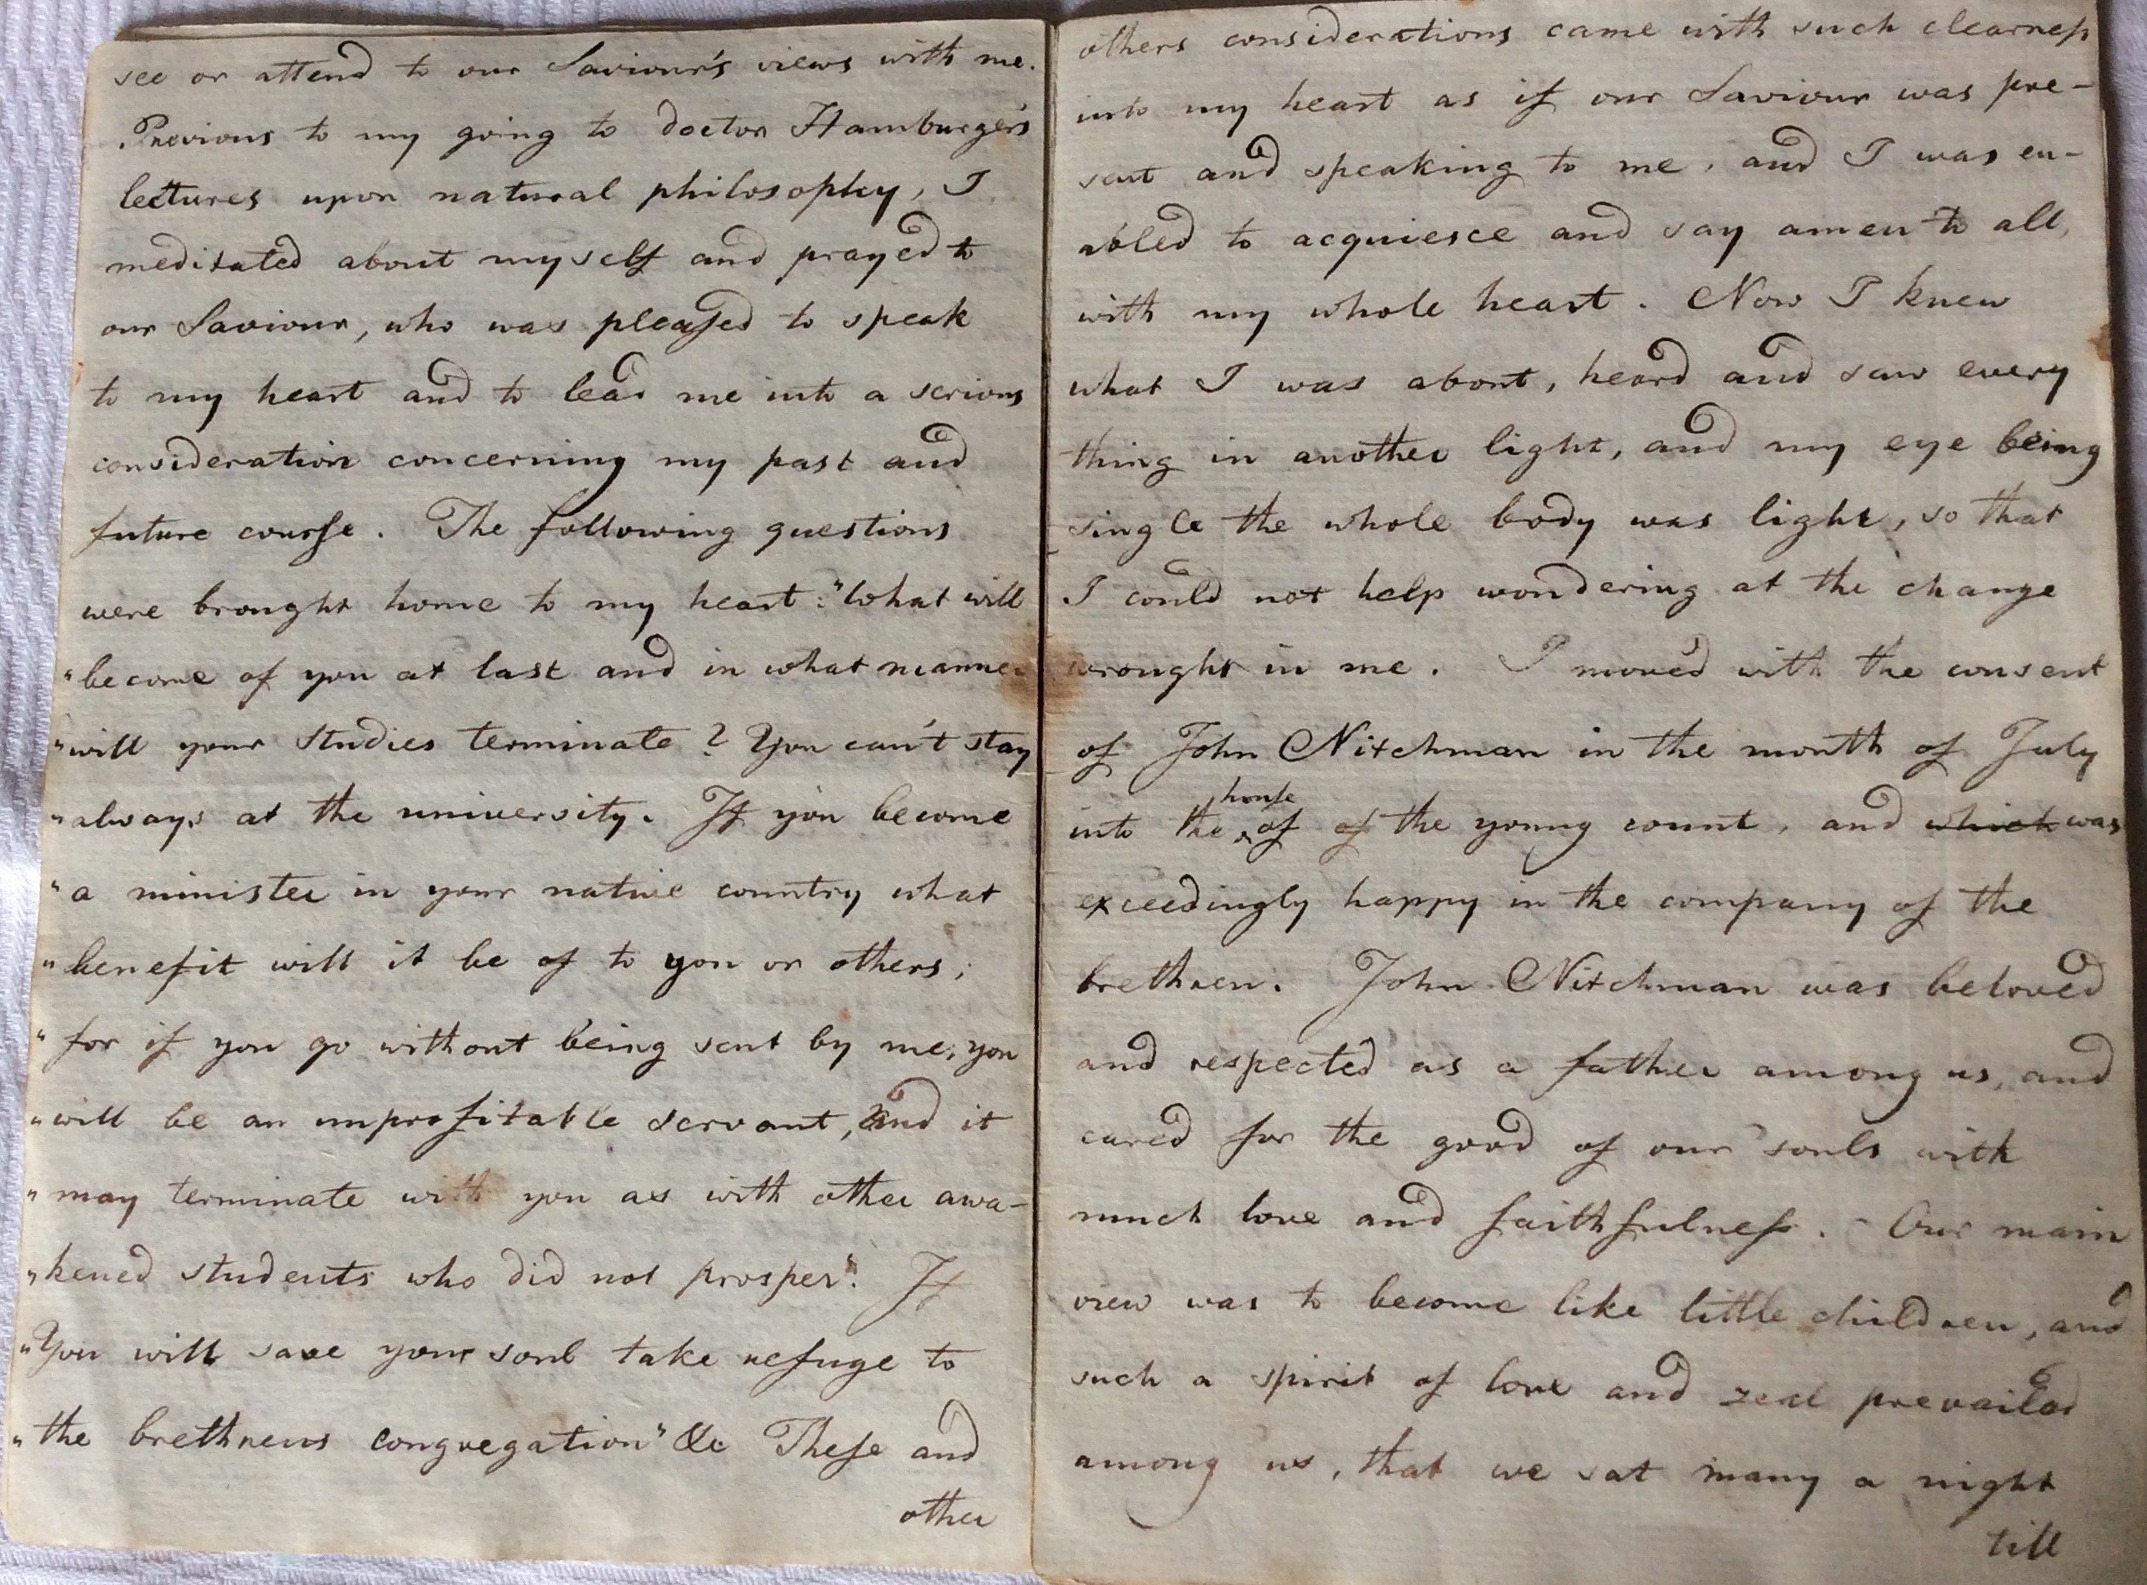 see or attend to our Saviour's views with me.
Previous to my going to doctor Hamburger's
lectures upon natural philosophy, I
meditated about myself and prayed to
our Saviour, who was pleaſed to speak
to my heart and to lead me into a serious
consideration concerning my past and
future courſe. The following questions
were brought home to my heart: "What will
"become of you at last and in what manner
"will your studies terminate? You can't stay
"always at the university. If you become
"a minister in your native country what
"benefit will it be of to you or others;
"for if you go without being sent by me, you
"will be an unprofitable servant, and it
"may terminate with you as with other awa-
"kened students who did not prosper". If
"You will save your soul take refuge to
"the brethrens congregation" &c Theſe and
other
others considerations came with such clearneſs
into my heart as if our Saviour was pre-
sent and speaking to me, and I was en-
abled to acquiesce and say amen to all,
with my whole heart. Now I knew
what I was about, heard and saw every
thing in another light, and my eye being
single the whole body was light, so that
I could not help wondering at the change
wrought in me. I moved with the consent
of John Nitchman in the month of July
houſe
into the ‸ of of the young count, and which was
exceedingly happy in the company of the
brethren. John Nitchman was beloved
and respected as a father among us, and
cared for the good of our souls with
much love and faithfulneſs. - Our main
view was to become like little children, and
such a spirit of love and zeal prevailed
among us, that we sat many a night
till